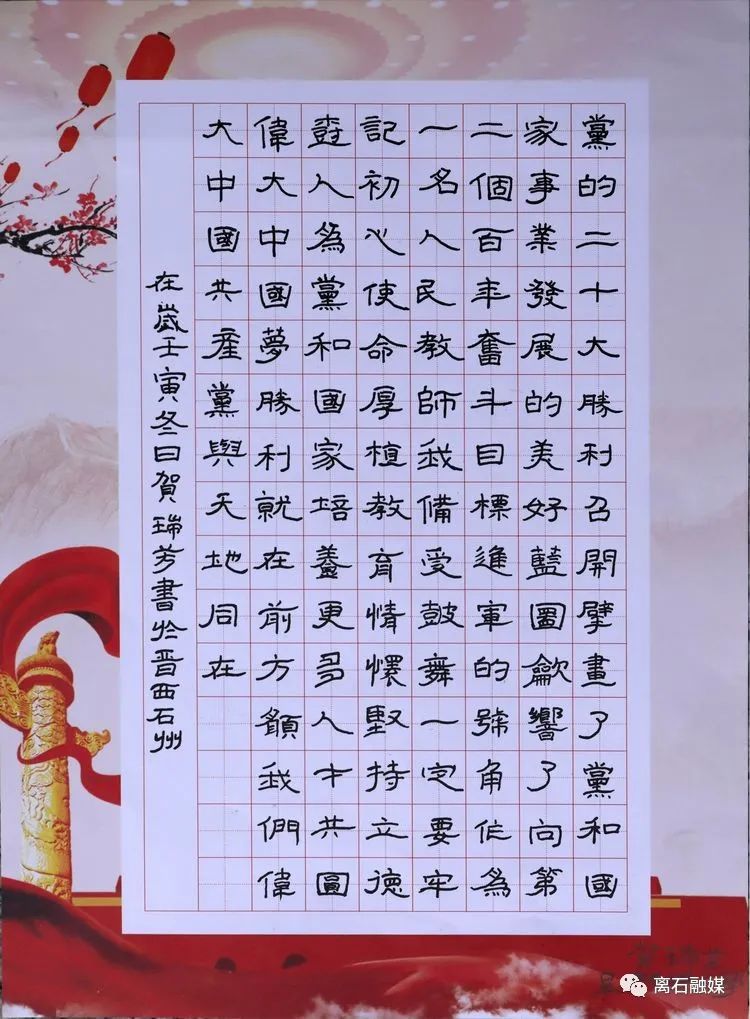 黨的二十大勝利召開擘畫了黨和國
家事業發展的美好藍圖龡響了向第
二個百年奮斗目標進軍的號角作為
一名人民教師我備受鼓舞一定要牢
記初心使命厚植教育情懷堅持立德
樹人為黨和國家培養更多人才共圓
偉大中國夢勝利就在前方願我們偉
大中國共產黨與天地同在
在歲壬寅冬日賀瑞芳書於晉西石州
离石融媒